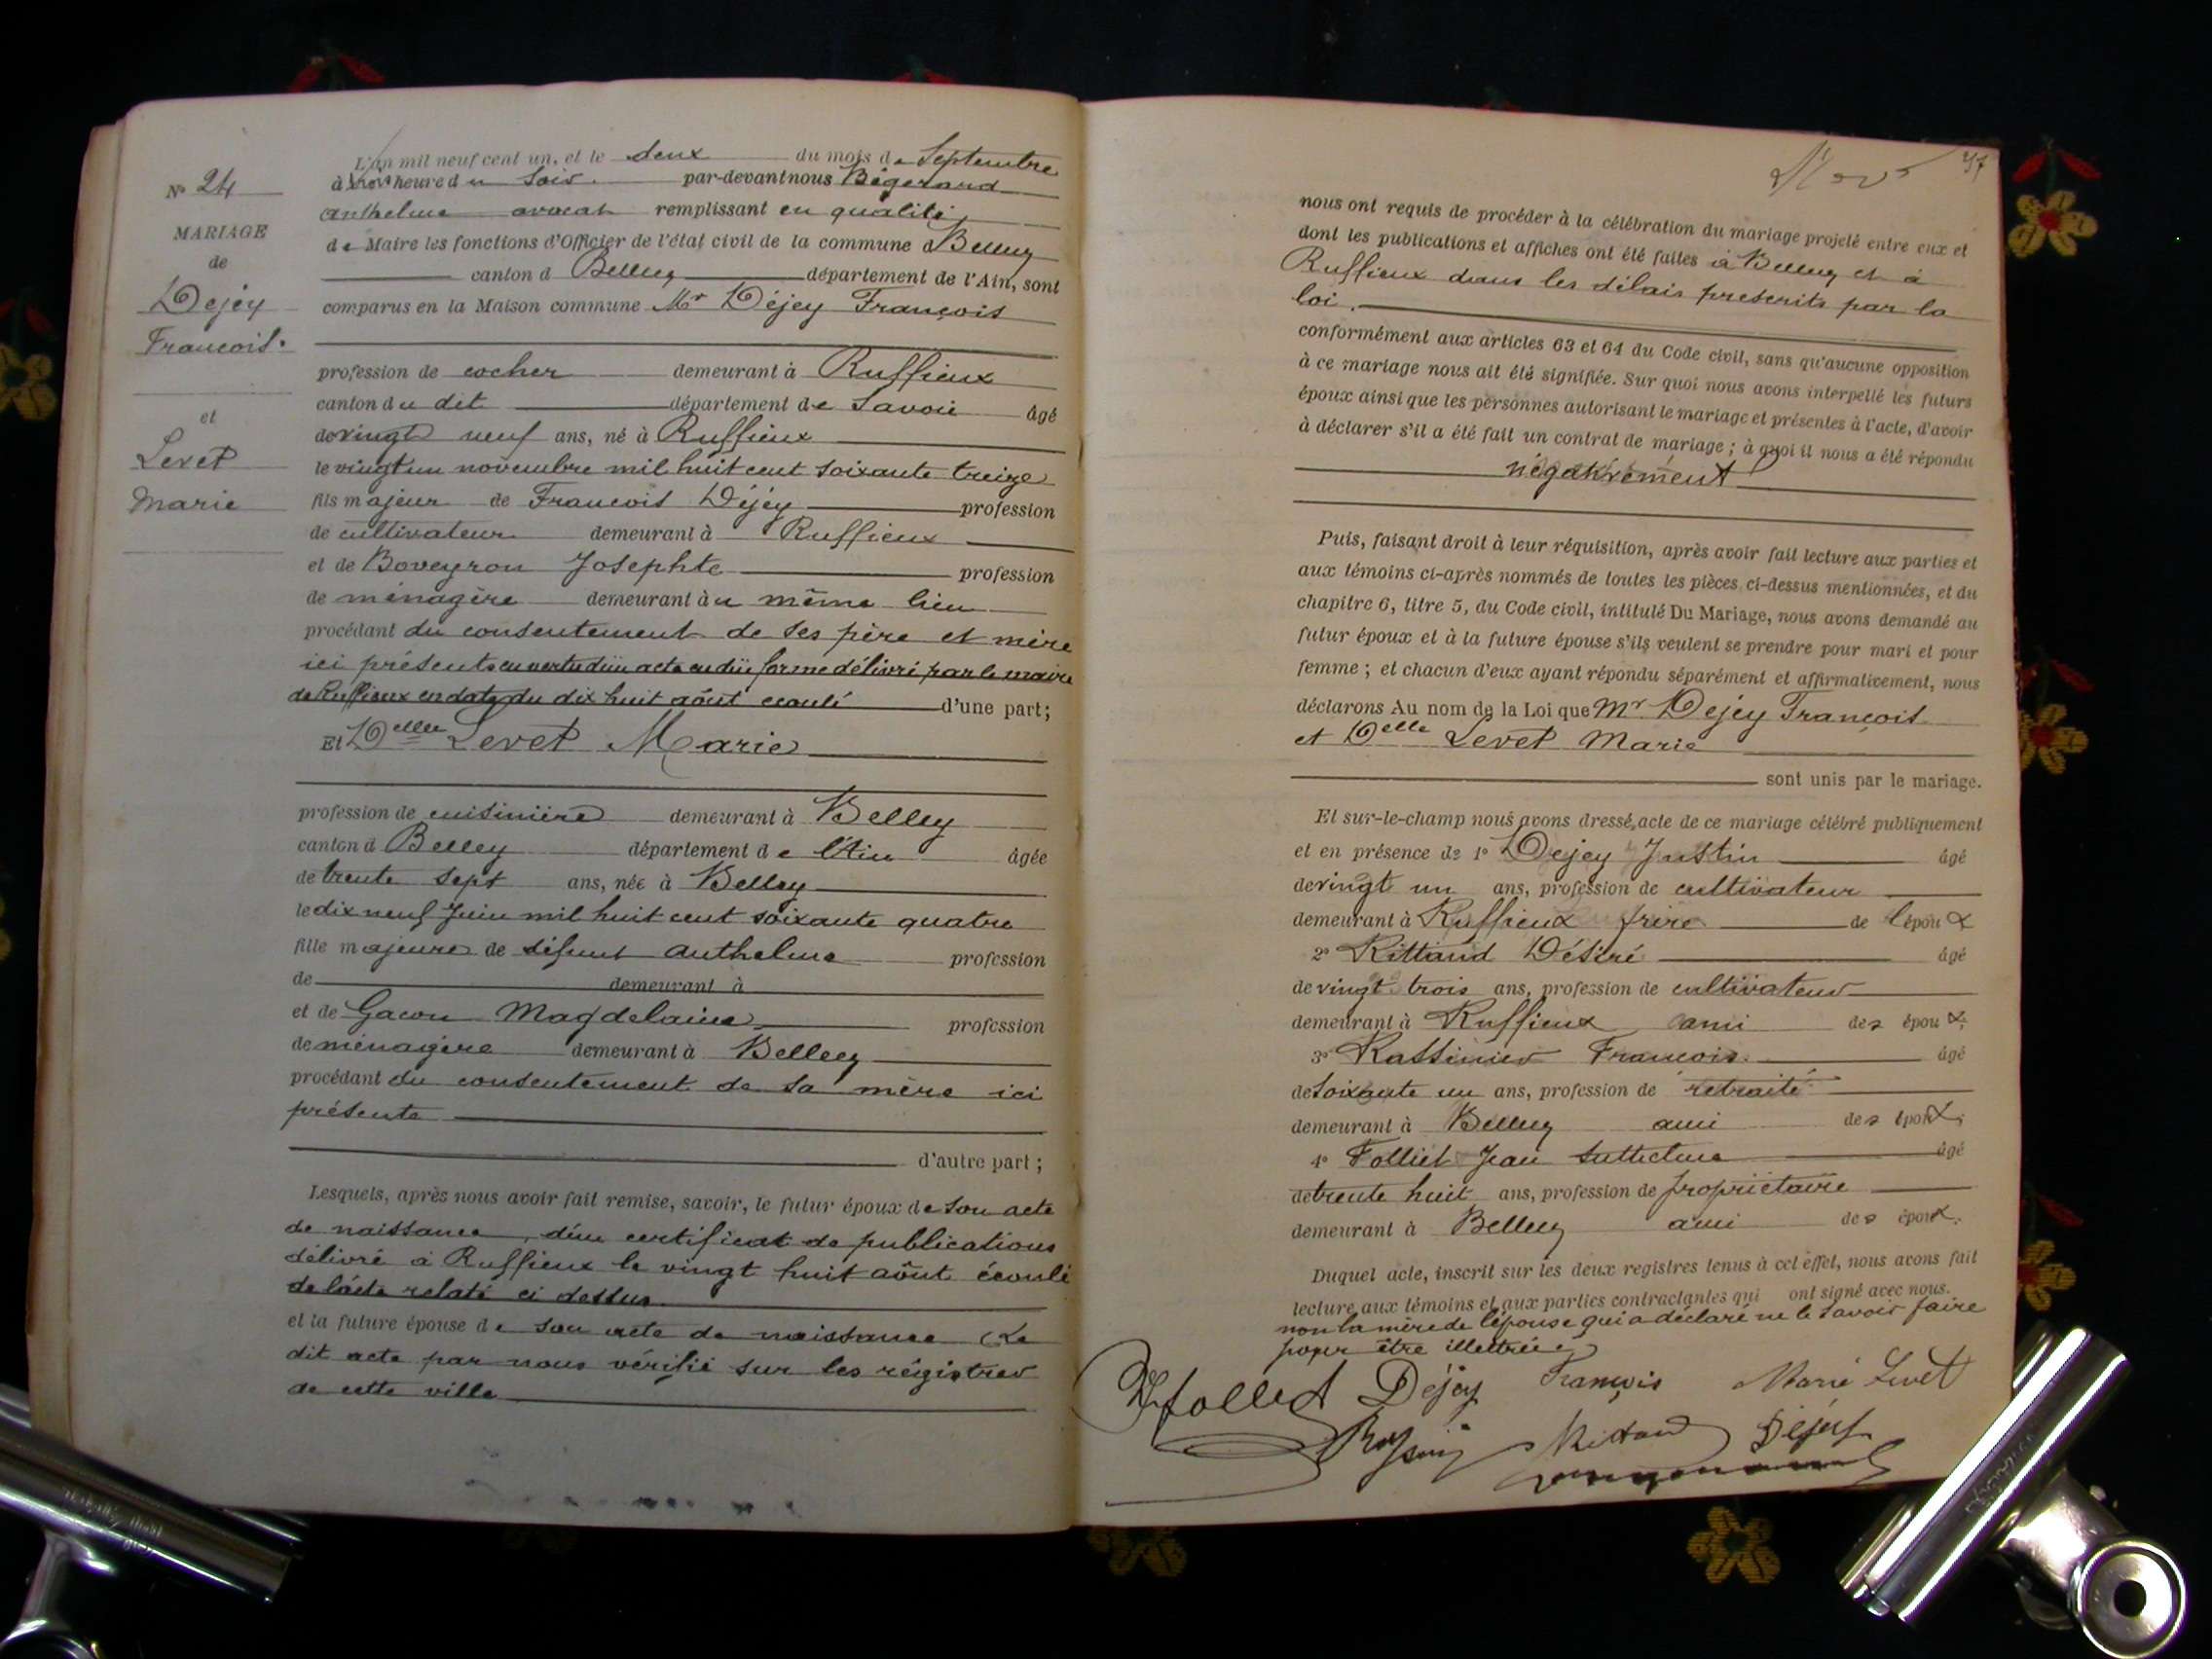 N° 24
MARIAGE
de
Dejey
Francois.
et
Levet
Marie
L'an mil neuf cent un, et le deux du mois de Septembre
à heure du Soir. par-devant nous Bégerard
anthelme avocat remplissant en qualité
de Maire les fonctions d'Officier de l'état civil de la commune d Belley
canton d Belley département de l'Ain, sont
comparus en la Maison commune Mr Déjey François
profession de cocher demeurant à Ruffieux
canton du dit département de Savoie âgé
de vingt neuf ans, né à Ruffieux
le vingt un novembre mil huit cent soixante treize
fils majeur de Francois Déjéy profession
de cultivateur demeurant à Ruffieux
et de Boveyron Josephte profession
de ménagère demeurant àu même lieu
procédant du consentement de ses père et mère
ici présents en vertu d'un acte en dû forme délivré par le maire
de Ruffieux en date du dix huit août écoulé d'une part;
Et Delle Levet Marie
profession de cuisinière demeurant à Belley
canton d Belley département de l'Ain âgée
de trente sept ans, née à Belley
le dix neuf Juin mil huit cent soixante quatre
fille majeure de défunt Anthelme profession
de demeurant à
et de Gacon Magdelaine profession
de ménagère demeurant à Belley
procédant du consentement de sa mère ici
présente
d'autre part;
Lesquels, après nous avoir fait remise, savoir, le futur époux de son acte
de naissance, d'un certificat de publications
délivré à Ruffieux le vingt huit août écoulé
de l'acte relaté ci dessus
et la future épouse de son acte de naissance (Le
dit acte par nous vérifié sur les régistres
de cette ville
57
nous ont requis de procéder à la célébration du mariage projeté entre eux et
dont les publications et affiches ont été faites à Belley et à
Ruffieux dans les délais prescrits par la
loi.
conformément aux articles 63 et 64 du Code civil, sans qu'aucune opposition
à ce mariage nous ait été signifiée. Sur quoi nous avons interpellé les futurs
époux ainsi que les personnes autorisant le mariage et présentes à l'acte, d'avoir
à déclarer s'il a été fait un contrat de mariage; à quoi il nous a été répondu
négativement
Puis, faisant droit à leur réquisition, après avoir fait lecture aux parties et
aux témoins ci-après nommés de toutes les pièces ci-dessus mentionnées, et du
chapitre 6, titre 5, du Code civil, intitulé Du Mariage, nous avons demandé au
futur époux et à la future épouse s'ils veulent se prendre pour mari et pour
femme; et chacun d'eux ayant répondu séparément et affirmativement, nous
déclarons Au nom de la Loi que Mr Dejey François
et Delle Levet Marie
sont unis par le mariage.
Et sur-le-champ nous avons dressé acte de ce mariage célébré publiquement
et en présence de 1° Dejey Justin âgé
de vingt un ans, profession de cultivateur
demeurant à Ruffieux frère de l'époux
2° Rittaud Désiré âgé
de vingt trois ans, profession de cultivateur
demeurant à Ruffieux ami des époux;
3° Rassinier François âgé
de soixante un ans, profession de retraité
demeurant à Belley ami des époux;
4° Folliet Jean âgé
de trente huit ans, profession de propriétaire
demeurant à Belley ami des époux.
Duquel acte, inscrit sur les deux registres tenus à cet effet, nous avons fait
lecture aux témoins et aux parties contractantes qui ont signé avec nous.
non la mère de l'épouse qui a déclaré ne le savoir faire
pour être illettrée
follet Déjey François Marie Levet
Rittaud Déjey